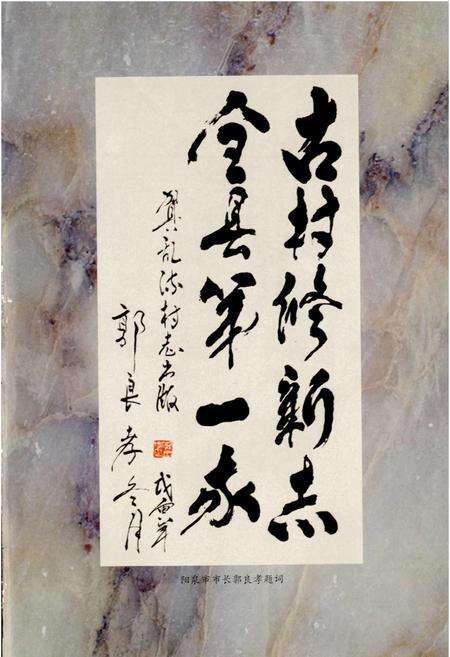 古村修新志
全县第一家
贺乱流村志出版
戊寅年
郭良孝 冬月
阳泉市市长郭良孝题词